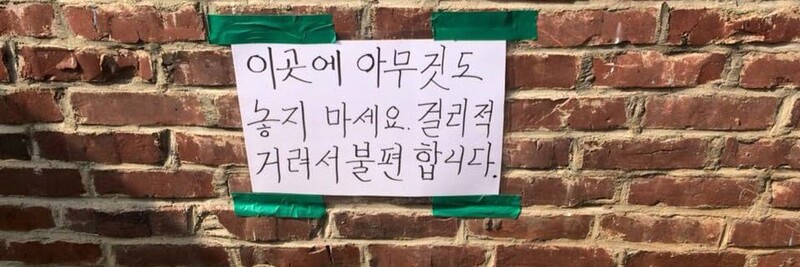 이곳에 아무것도
놓지 마세요. 걸리적
거려서 불편 합니다.